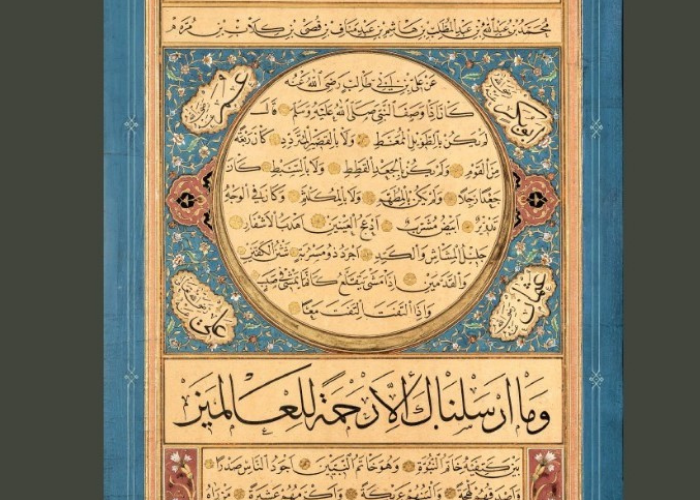 محمد بن عبد الله بن عبد المطلب بن هاشم بن عبد مناف بن قصى بن كلاب بن مرة
ابو بكر
عمر
عن على بن ابى طالب رضى الله عنه
كان اذا وصف النبى صلى الله عليه وسلم قال
لم يكن بالطويل الممغط ولا بالقصير المتردد كان ربعة
من القوم ولم يكن بالجعد القطط ولا بالسبط كان
جعدا رجلا ولم يكن بالمطهم ولا بالمكلثم وكان فى الوجه
تدوير ابيض مشرب ادعج العينين اهدب الاشفار
جليل المشاش والكتد اجرد ذو مسربة شثن الكفين
والقدمين اذا مشى يتقلع كانما يمشى فى صبب
واذا التفت التفت معا
عثمان
على
وما ارسلناك الا رحمة للعالمين
بين كتفيه خاتم النبوة وهو خاتم النبيين اجود الناس صدرا
لهجة والينهم عريكة واكرمهم عشيرة من رآه